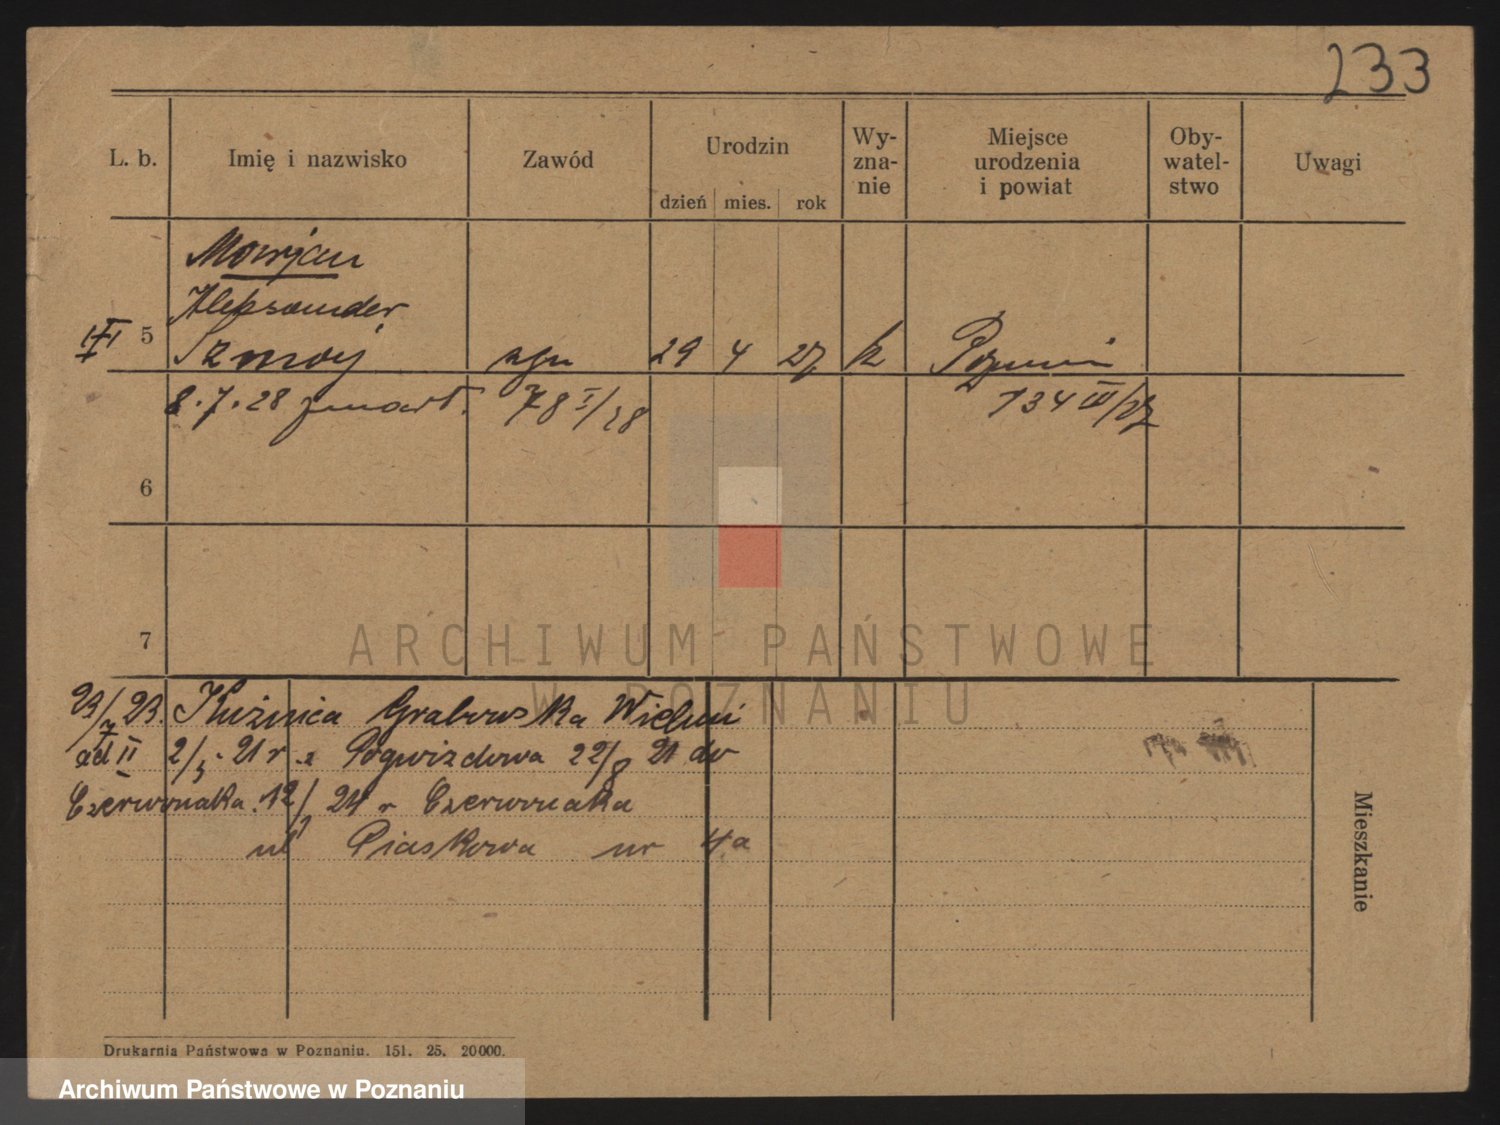 233
L. b. Imię i nazwisko Zawód Urodzin Wy-zna-nie Miejsce urodzenia i powiat Oby-watel-stwo Uwagi
dzień mies. rok
Aleksander
5 syn 29 4 27 k Poznań
8. 7. 28 zmarł. 78 I/28 134 III/27
6
7
ARCHIWUM PAŃSTWOWE
W POZNANIU
23. Kuźnica Grabowska Wieluń
ad II 21 r Pogwizdowa 22/8 21 do
Czerwonaka. 12/ 24 r Czerwonaka
ul Piaskowa nr 4a
Mieszkanie
Drukarnia Państwowa w Poznaniu. 151. 25. 20000.
Archiwum Państwowe w Poznaniu